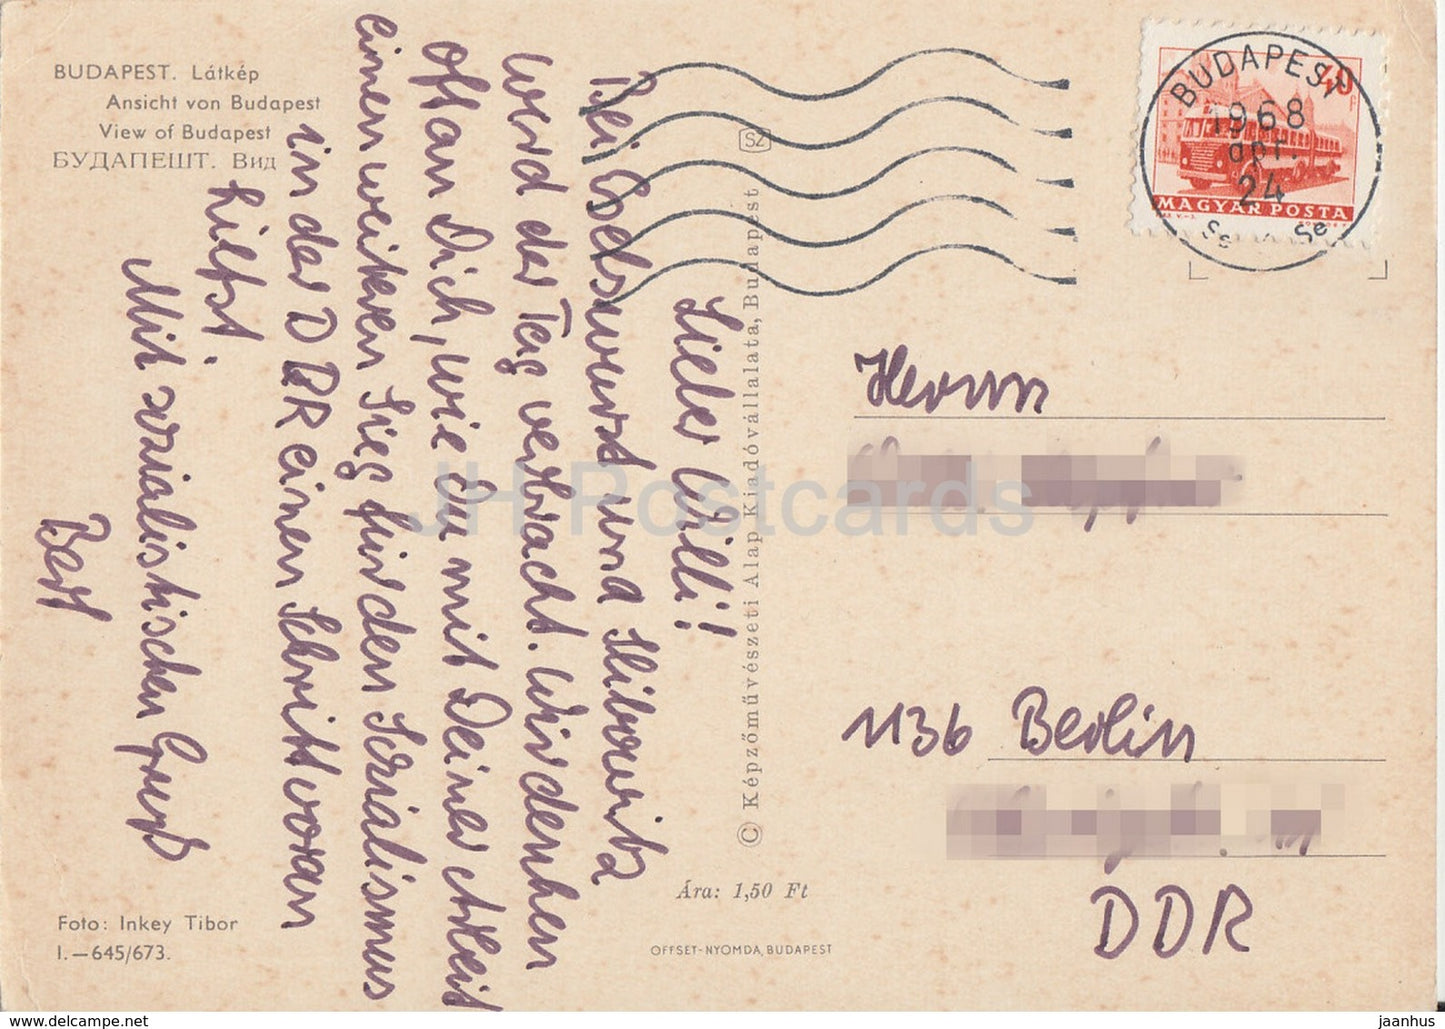 BUDAPEST. Látkép
Ansicht von Budapest
View of Budapest
БУДАПЕШТ. Вид
Lieber Willi!
Bei Eselswurst und Slibowitz
wird der Tag verbracht. Wir denken
oft an Dich, wie du mit Deiner Arbeit
einen weiteren Sieg für den Sozialismus
in der DDR einen Schritt voran
hilfst.
Mit sozialistischen Gruß
Bert
Foto: Inkey Tibor
I.—645/673.
SZ
© Képzőművészeti Alap Kiadóvállalata, Budapest
Ára: 1,50 Ft
OFFSET-NYOMDA, BUDAPEST
BUDAPEST
1968
ápr.
24
40
MAGYAR POSTA
Herrn
1136 Berlin
DDR
JH Postcards
www.delcampe.net
jaanhus